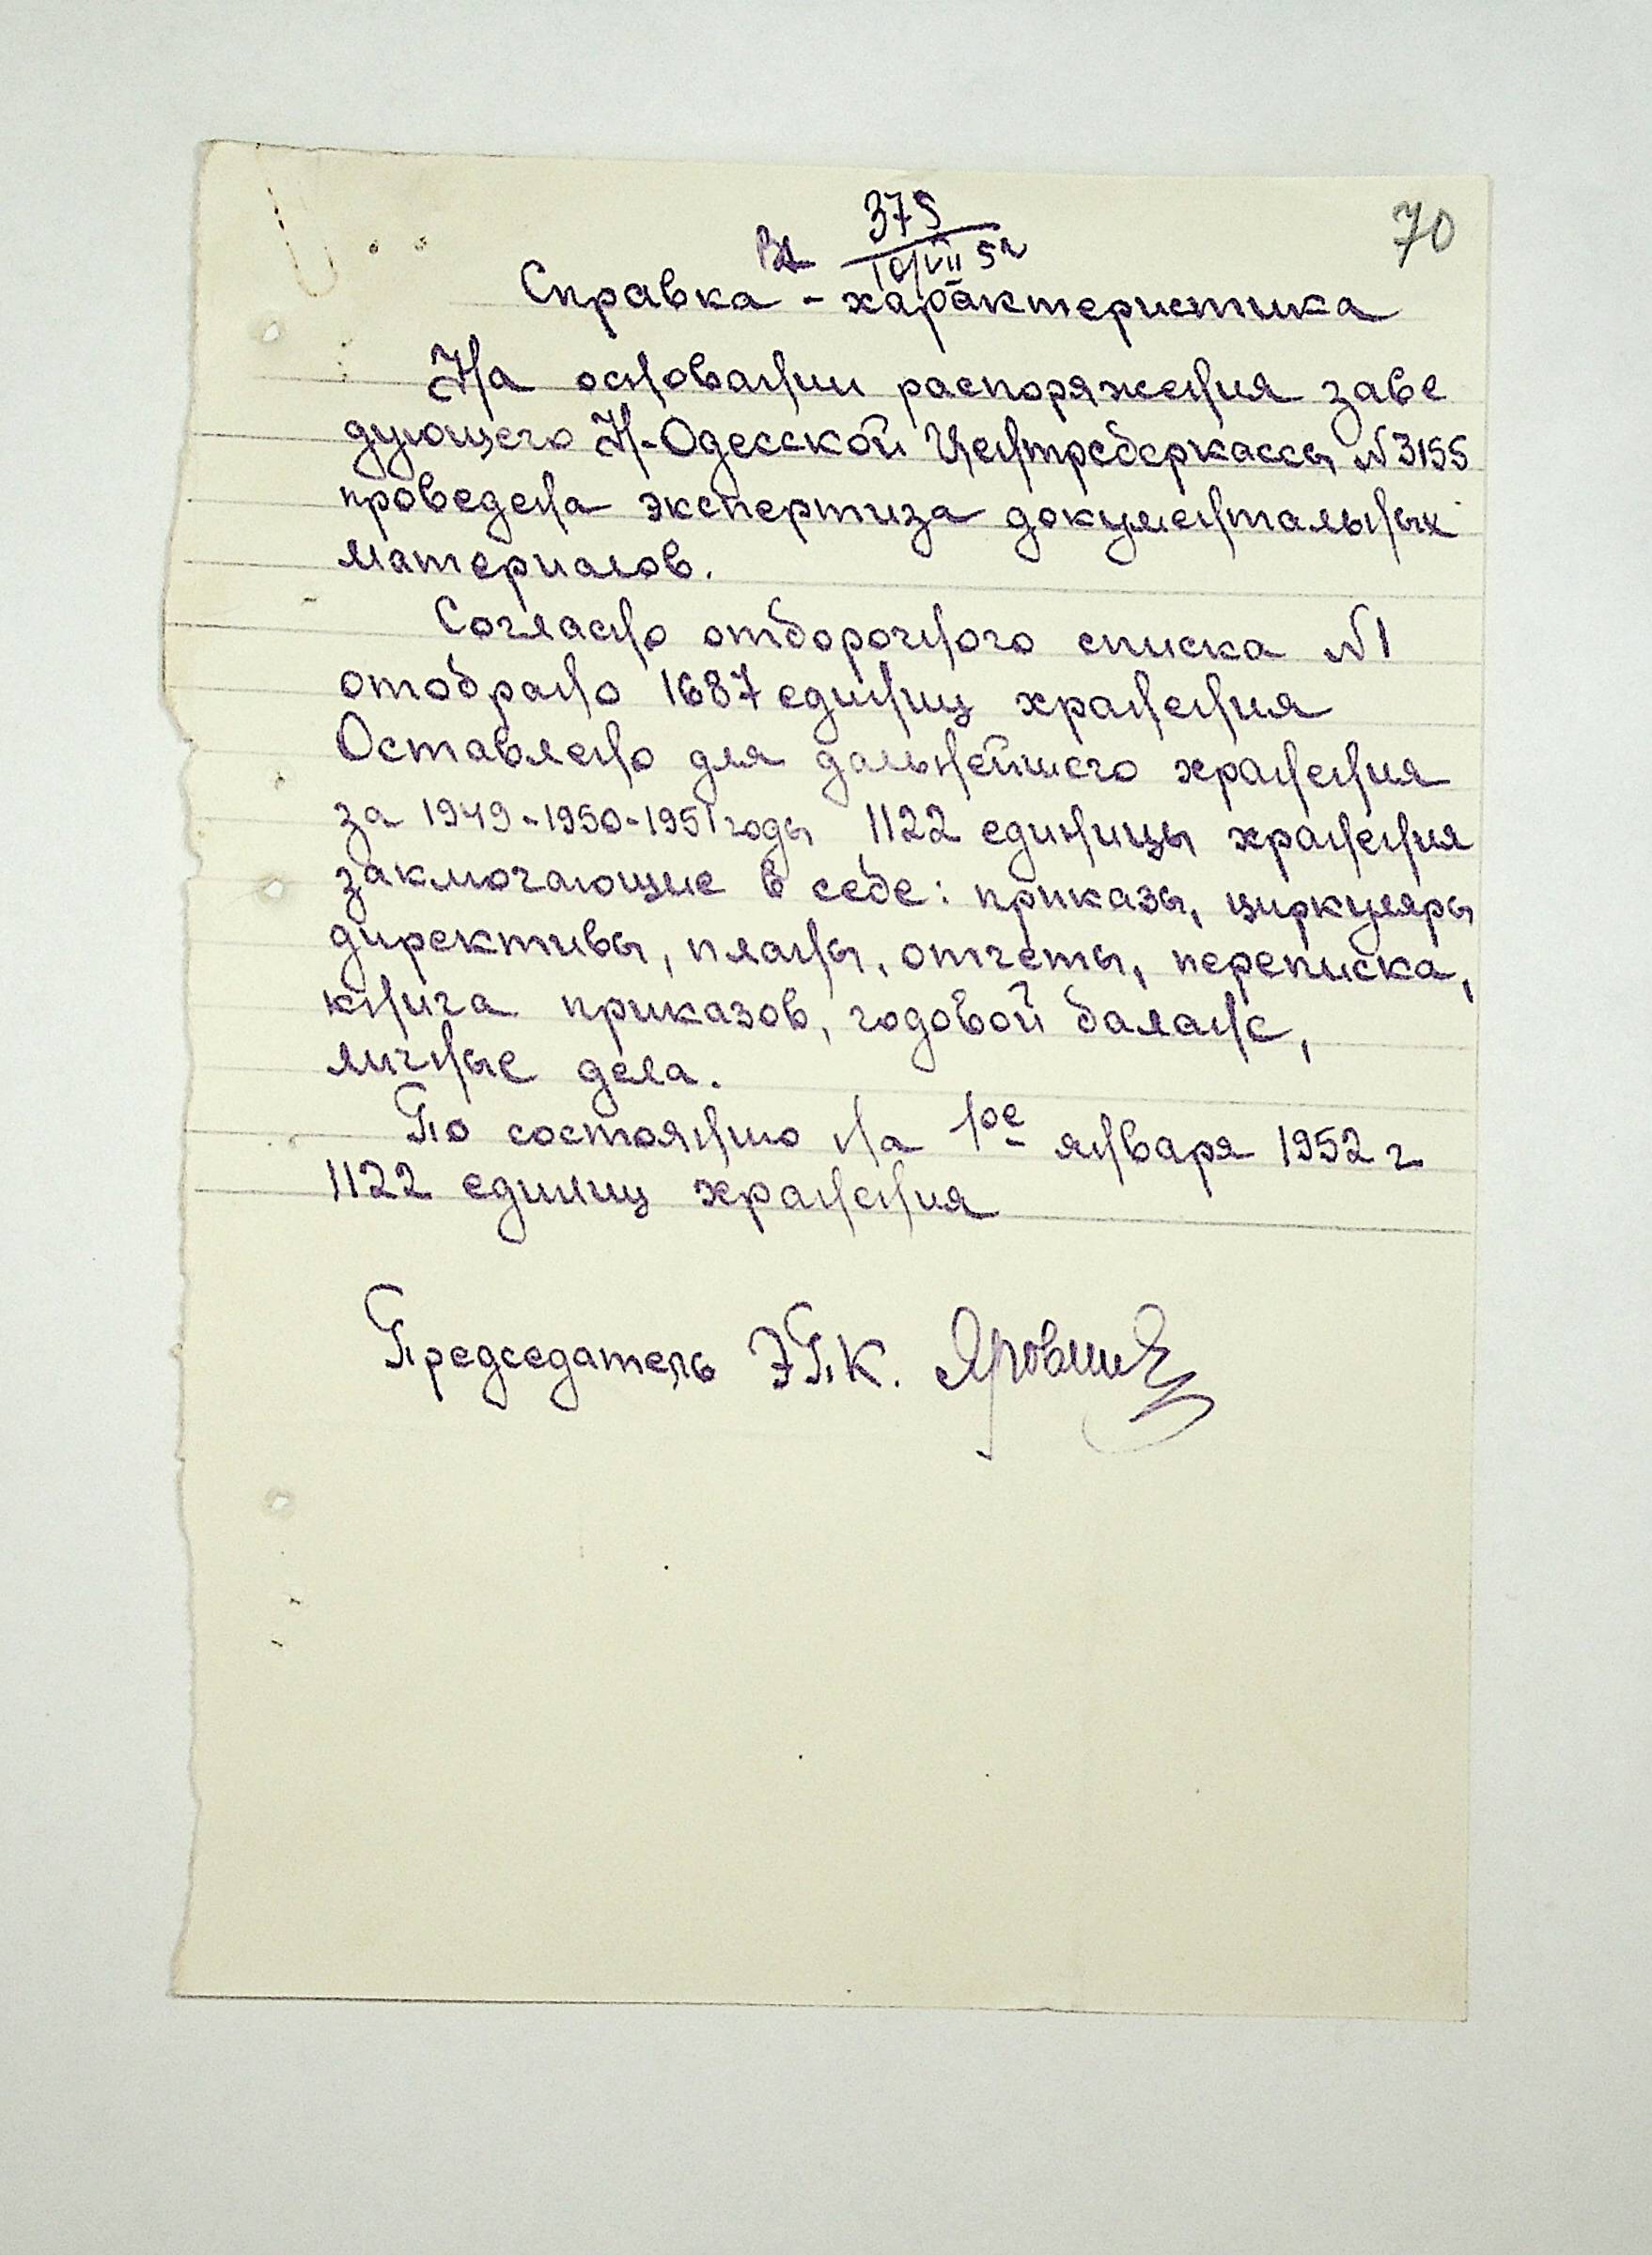 70
Вх 375
10/VII 52
Справка - характеристика
На основании распоряжения заве
дующего Н-Одесской Центрсберкассы №3155
проведена экспертиза документальных
материалов.
Согласно отборочного списка №1
отобрано 1687 единиц хранения
Оставлено для дальнейшего хранения
за 1949-1950-1951 годы 1122 единицы хранения
заключающие в себе: приказы, циркуляры
директивы, планы, отчеты, переписка,
книга приказов, годовой баланс,
личные дела.
По состоянию на 1ое января 1952 г
1122 единиц хранения
Председатель ЭПК.